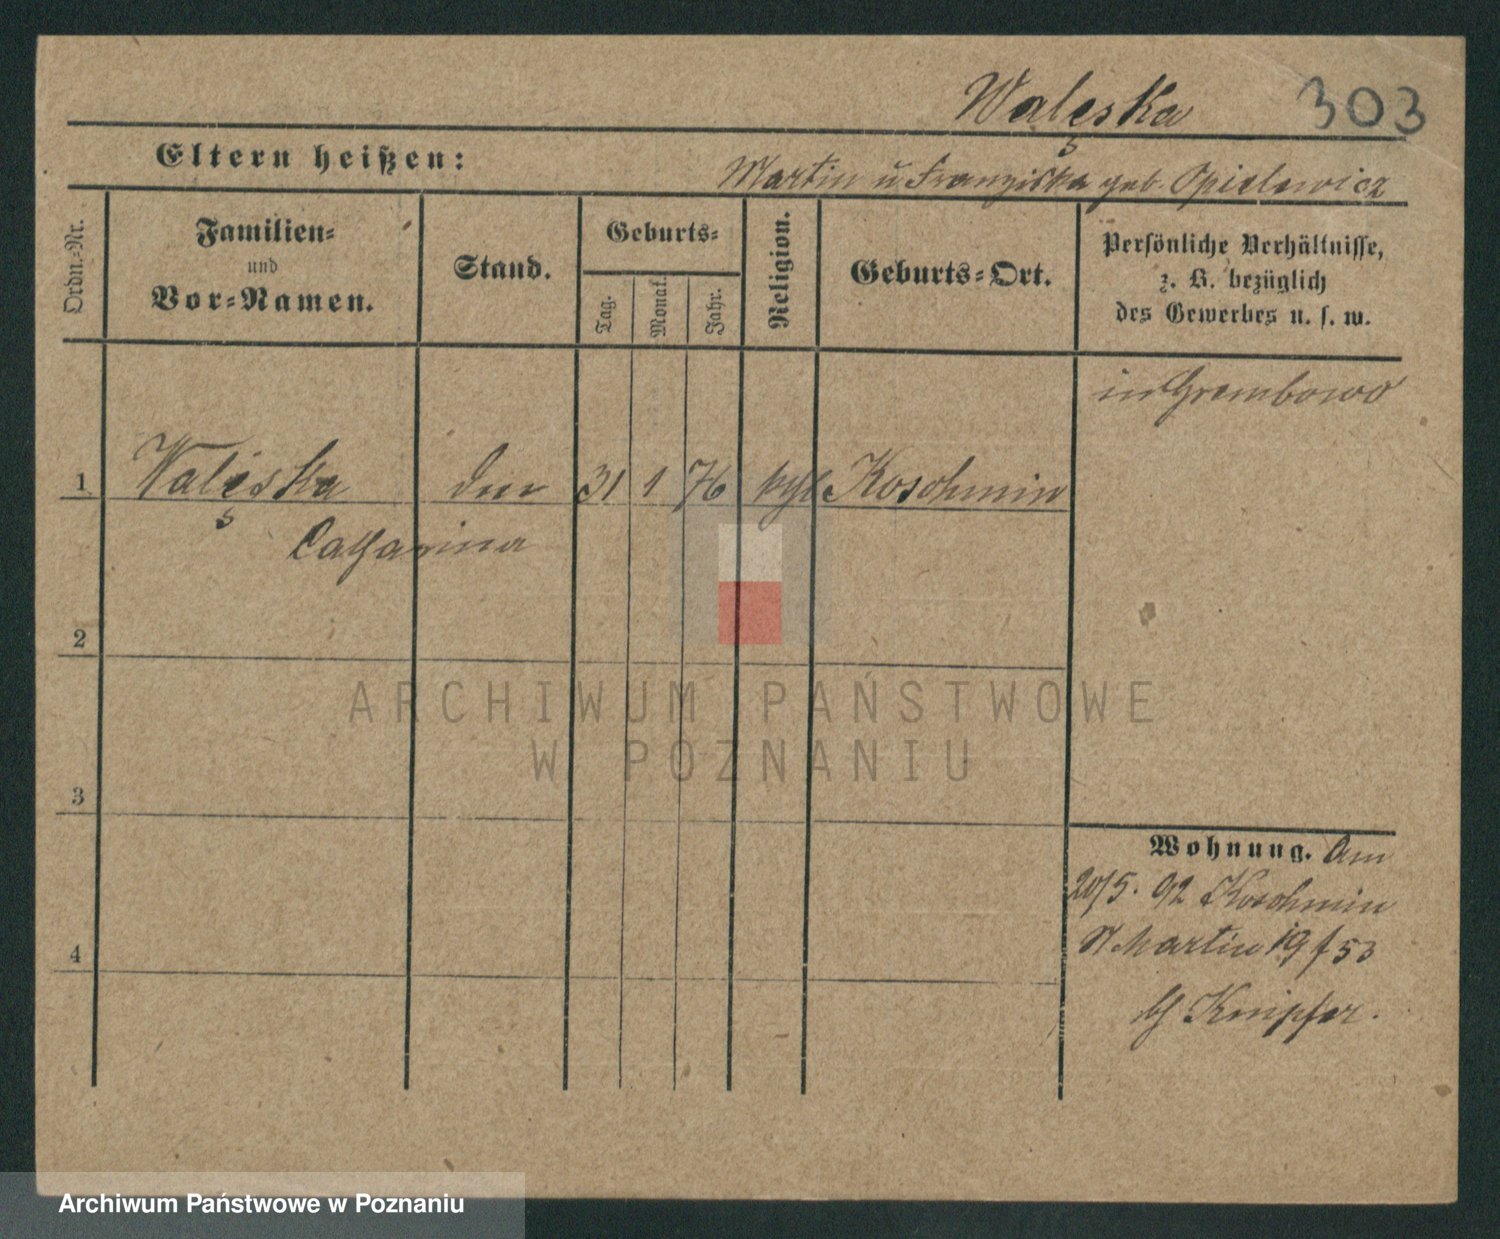 Waleska 303
Eltern heißen:
Martin u Franziska geb. Opielewicz
Ordn.-Nr.
Familien-
und
Vor-Namen.
Stand.
Geburts-
Tag.
Monat.
Jahr.
Religion.
Geburts-Ort.
Persönliche Verhältnisse,
z. B. bezüglich
des Gewerbes u. s. w.
in Grembowo
1 Waleska 31 1 76 kath Koschmin
s
Catharina
2
ARCHIWUM PAŃSTWOWE
W POZNANIU
3
4
Wohnung. Am
20/5. 92 Koschmin
St Martin 19 f 53
bei Knipfer.
Archiwum Państwowe w Poznaniu